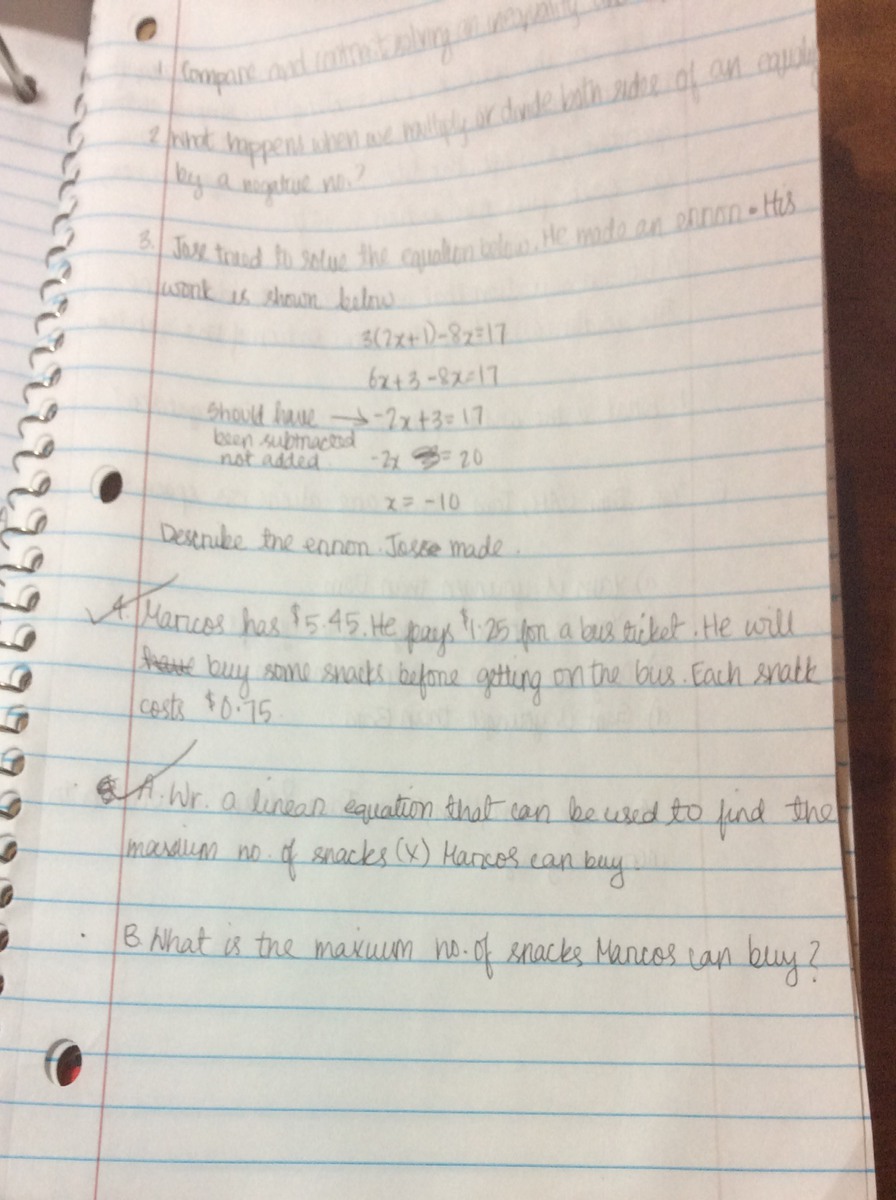 1 Compare and contrast solving an inequality
2. What happens when we multiply or divide both sides of an
by a negative no.?
3. Jose tried to solve the equation below. He made an error. His
work is shown below
3(2x+1)-8x=17
6x+3-8x=17
should have → -2x+3=17
been subtracted
not added -2x = 20
x = -10
Describe the error Jose made.
4. Marcos has $5.45. He pays $1.25 for a bus ticket. He will
buy some snacks before getting on the bus. Each snack
costs $0.75
A. Wr. a linear equation that can be used to find the
no. of snacks (x) Marcos can buy.
B. What is the maxuum no. of snacks Marcos can buy?